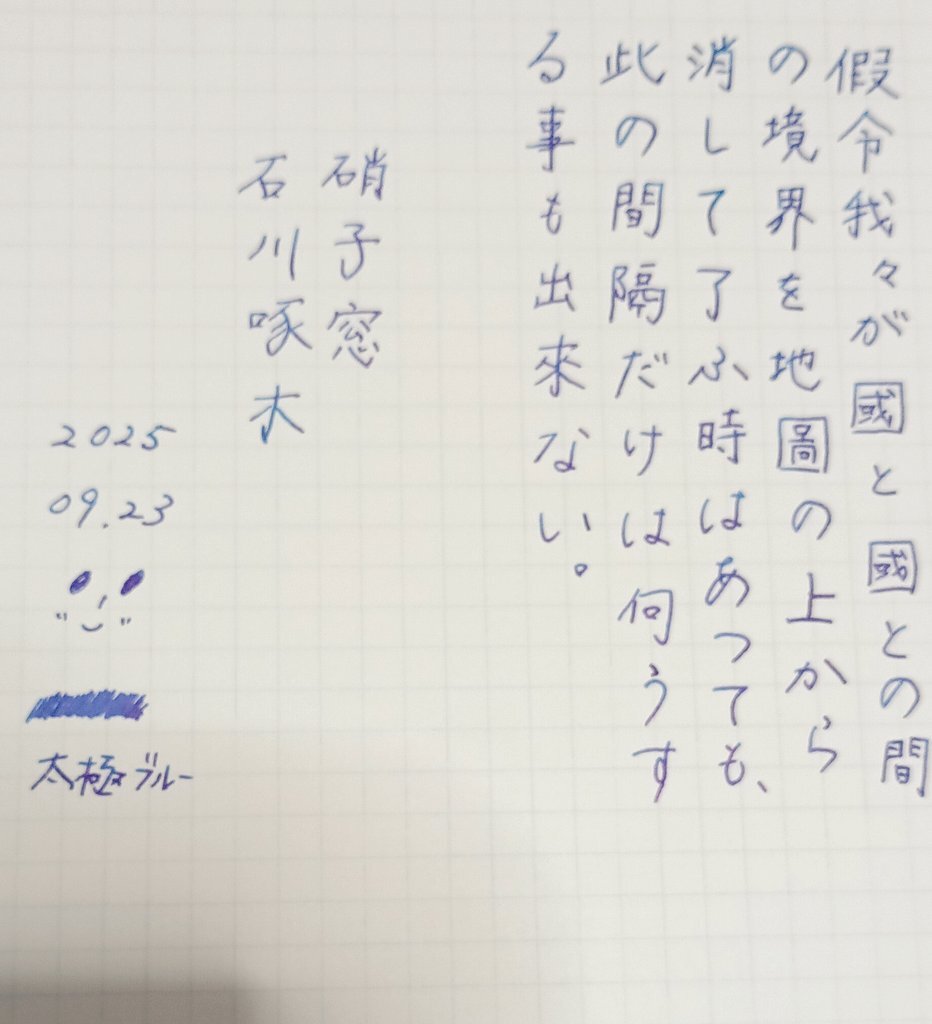 假令我々が國と國との間
の境界を地圖の上から
消して了ふ時はあっても、
此の間隔だけは何うす
る事も出來ない。
硝子窓
石川啄木
2025
09.23
太極ブルー